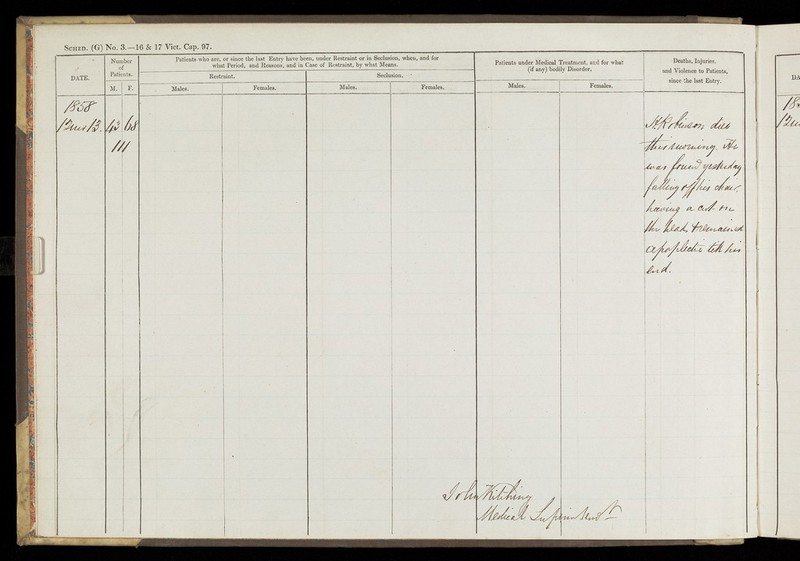 SCHED. (G) No. 3.—16 & 17 Vict. Cap. 97.
DATE.
Number of Patients.
M. F.
Patients who are, or since the last Entry have been, under Restraint or in Seclusion, when, and for
what Period, and Reasons, and in Case of Restraint, by what Means.
Restraint.
Seclusion.
Males. Females. Males. Females.
Patients under Medical Treatment, and for what
(if any) bodily Disorder.
Males. Females.
Deaths, Injuries,
and Violence to Patients,
since the last Entry.
1858
43 68
111
Robinson died
this morning. He
was found yesterday
falling off his chair,
having a cut on
the head, & remained
apoplectic till his
end.
John Kitching
Medical Superintendt
DA
18